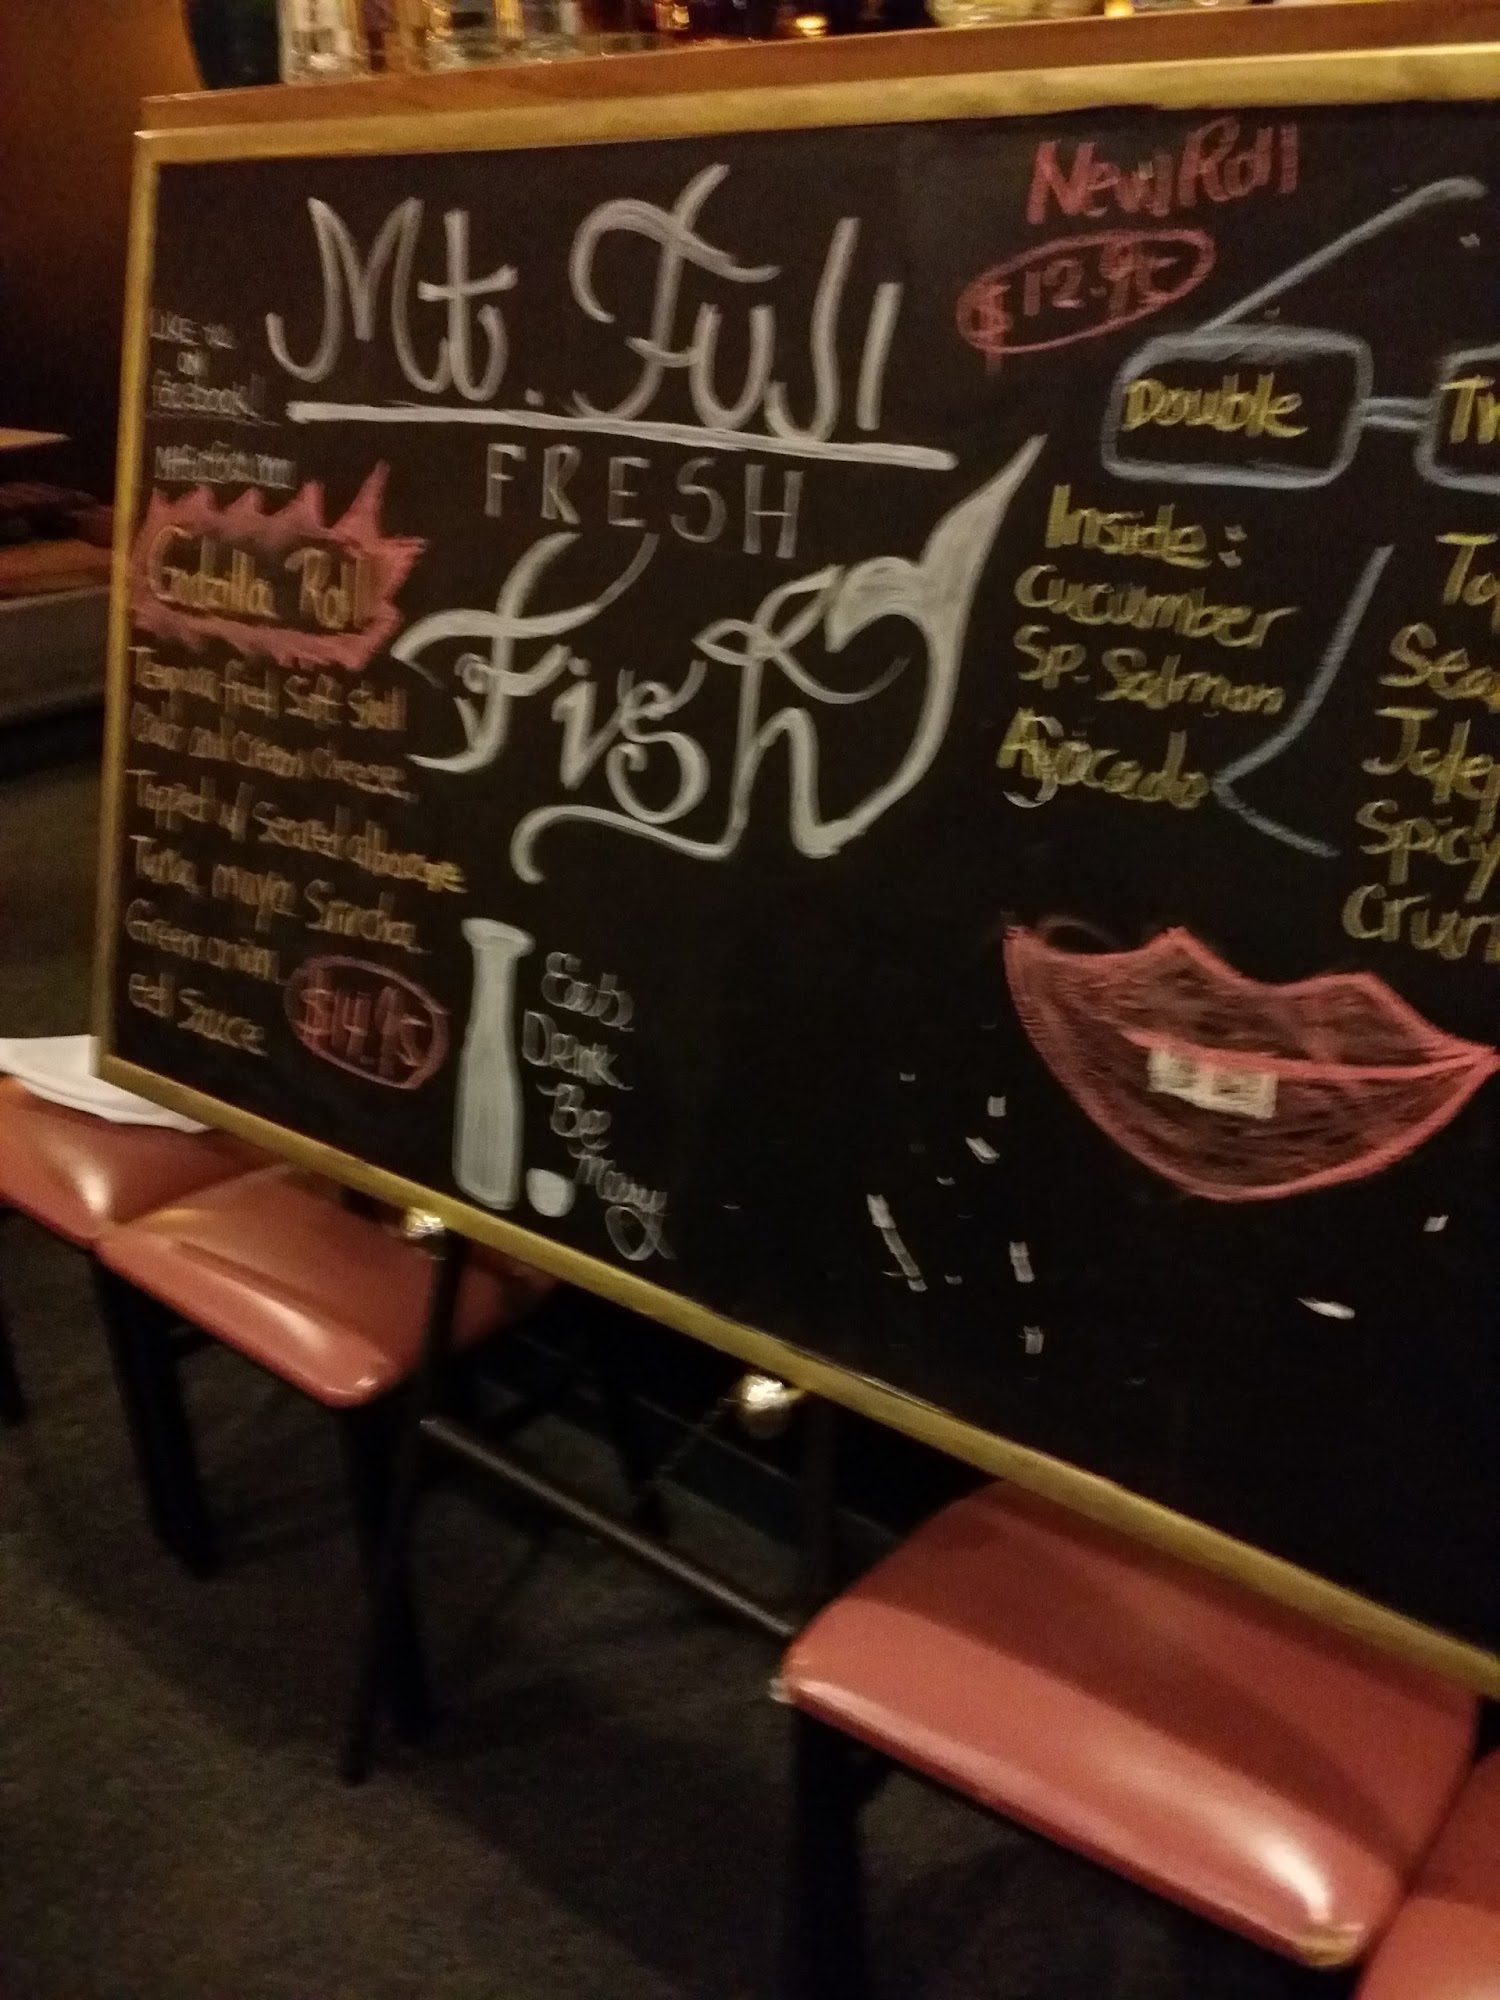 Mt. FUJI
FRESH
Fish
LIKE
on
facebook!!
Godzilla Roll
Tempura fried Soft Shell
and Cream Cheese.
Topped w/ Seared albacore
Tuna, mayo Sriracha
Green onion,
eel Sauce
$14.95
Eat.
Drink.
Be
Mary
New Roll
$12.95
Double
Inside:
Cucumber
Sp. Salmon
Avocado
Spicy